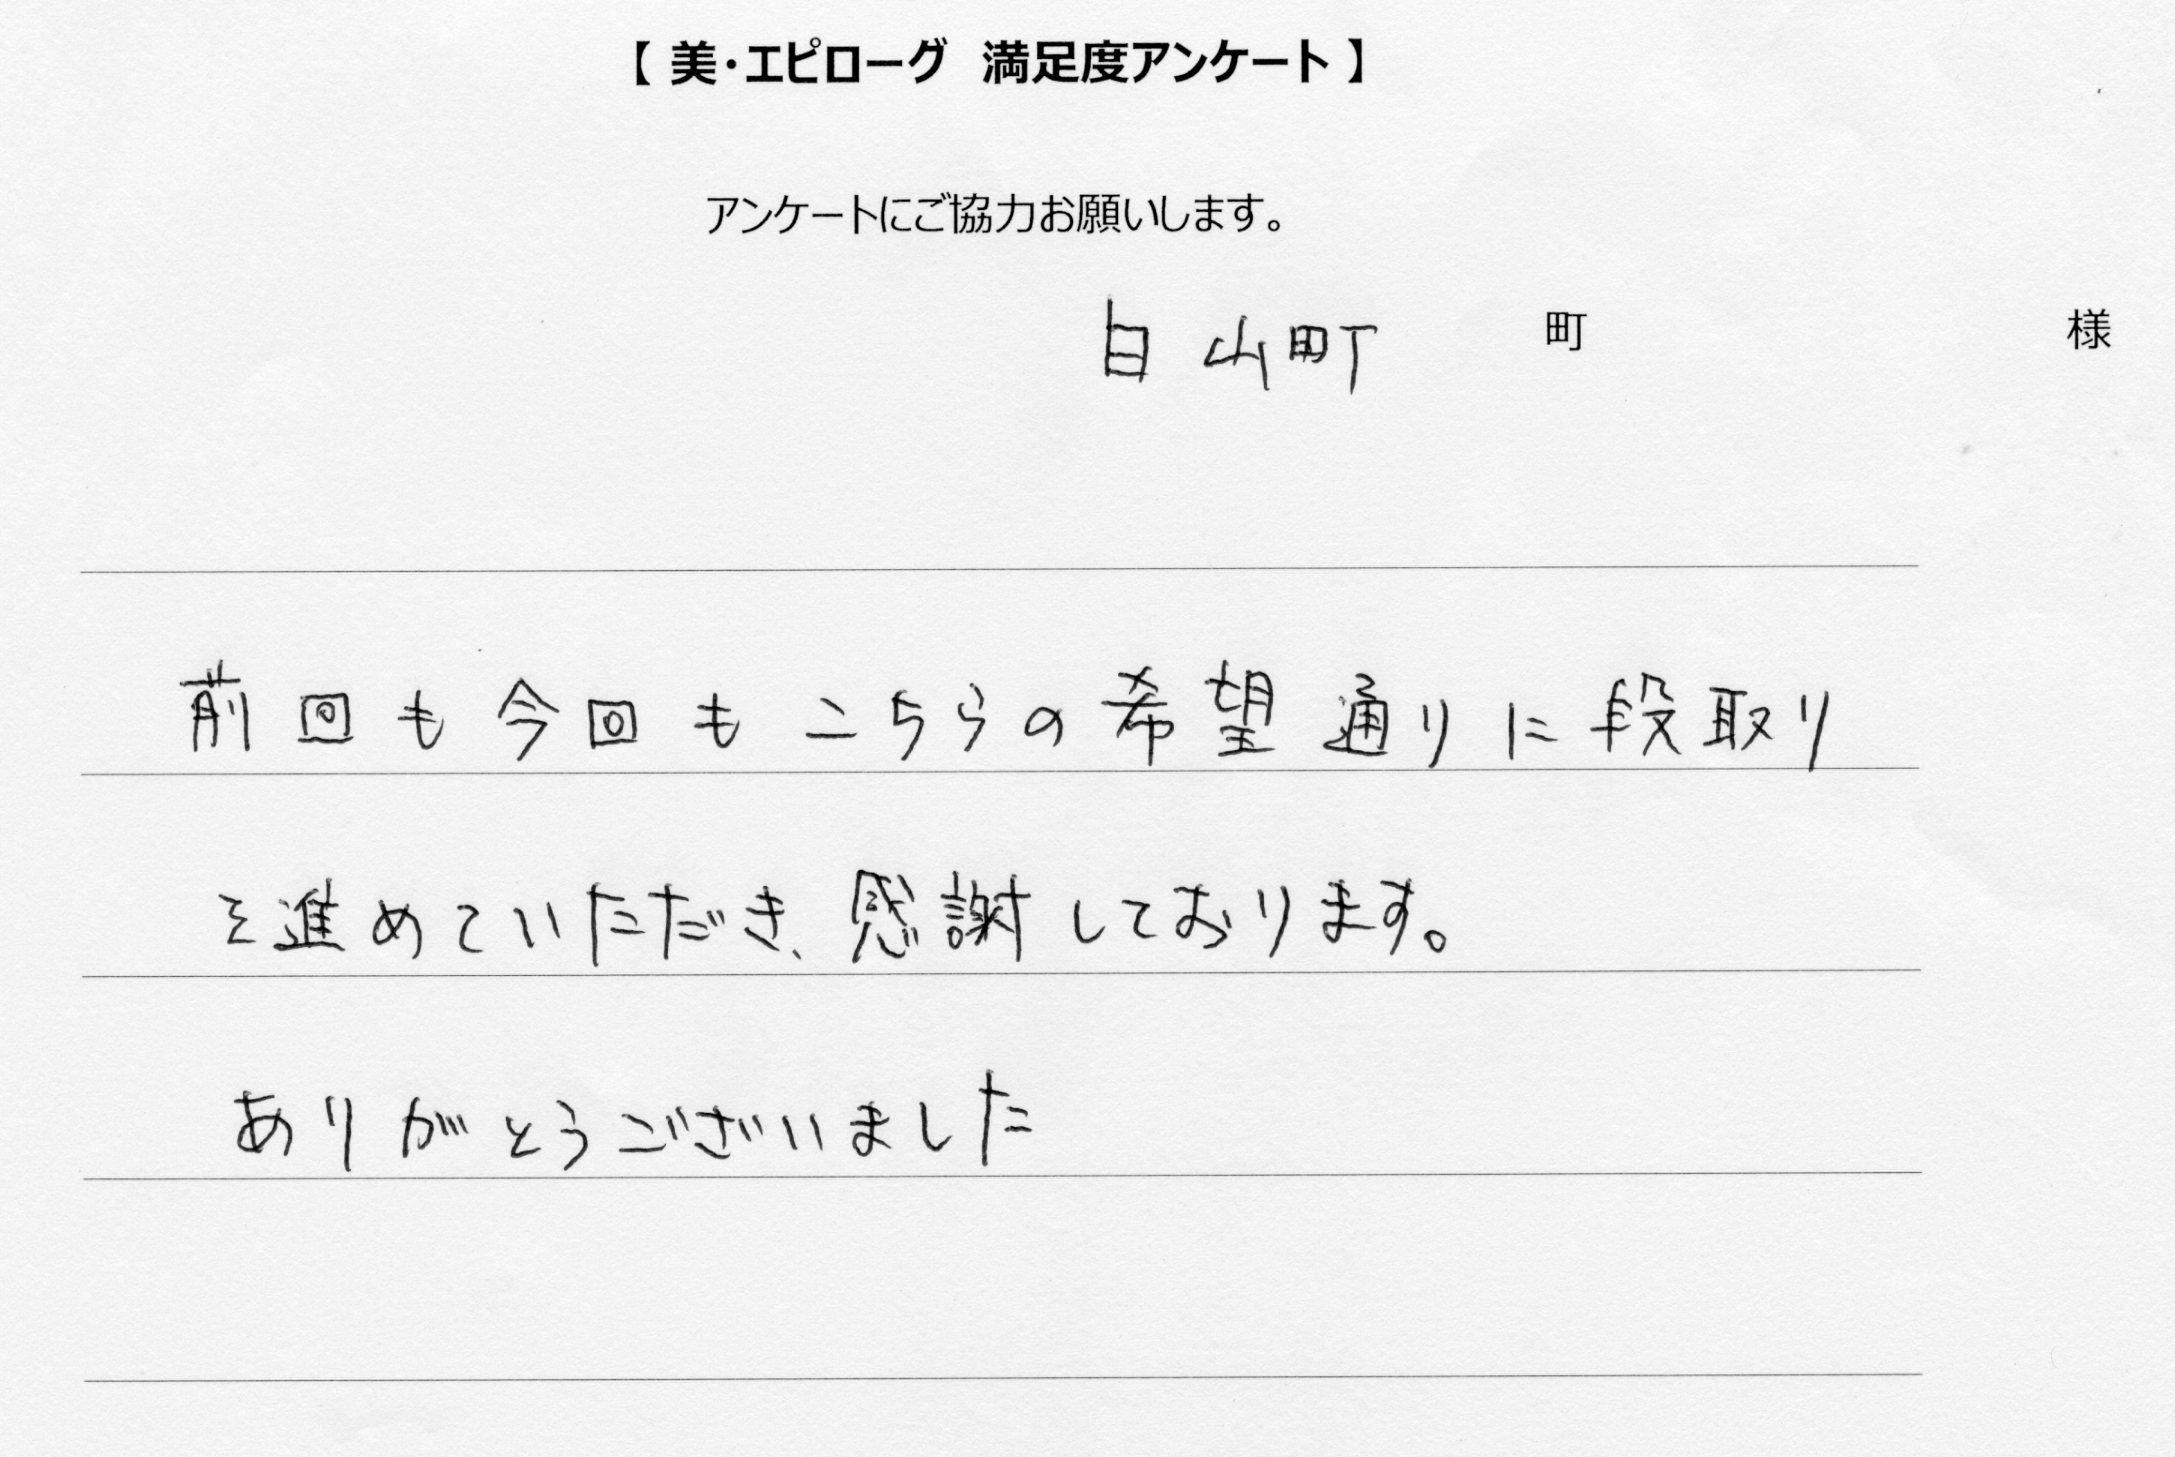 【 美・エピローグ 満足度アンケート 】
アンケートにご協力お願いします。
白山町 町 様
前回も今回もこちらの希望通りに段取り
を進めていただき、感謝しております。
ありがとうございました